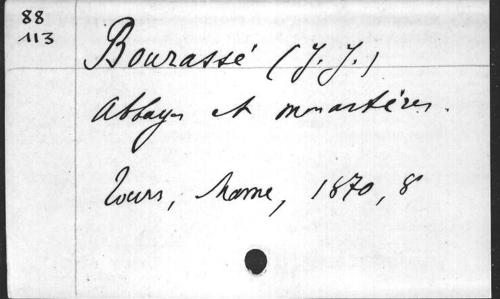 88
113
Bourassé (J. J.)
Abbayes et monastères.
Tours, Mame, 1870, 8